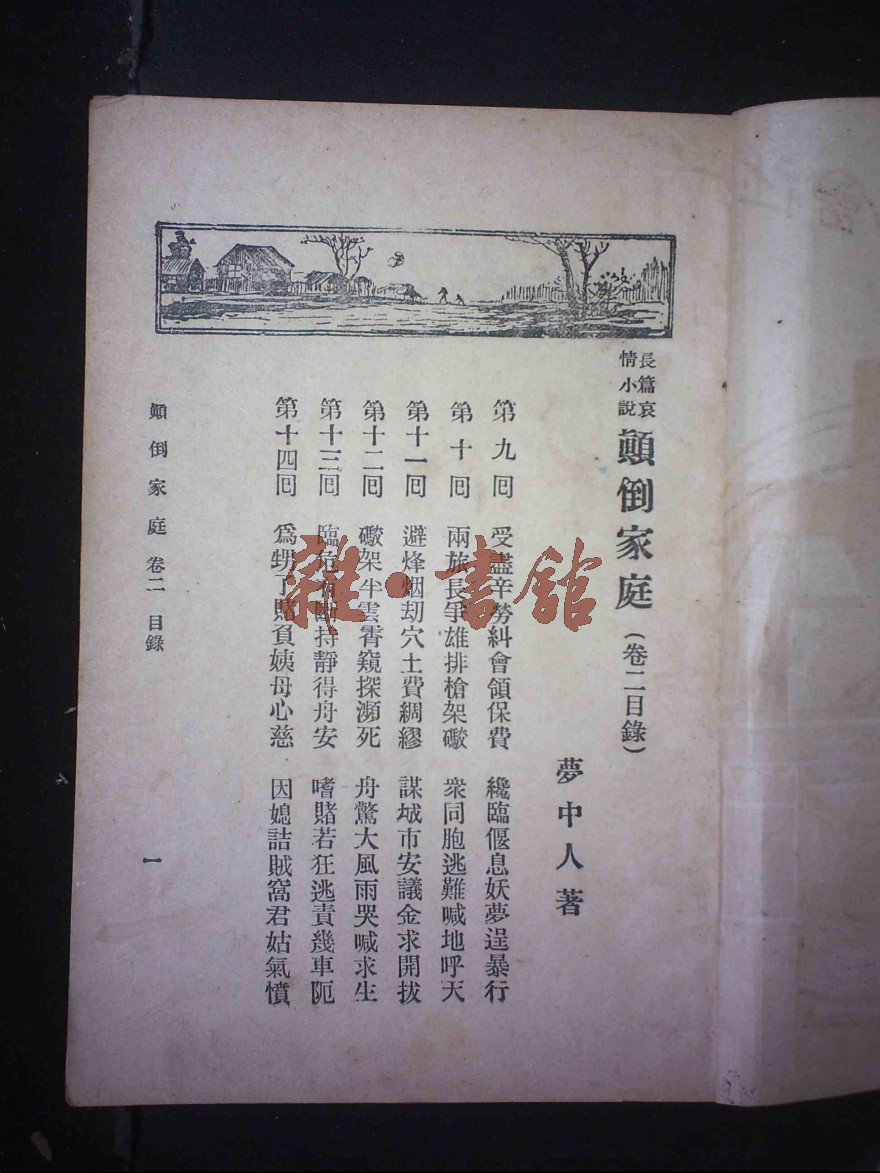 長篇哀情小說 顚倒家庭（卷二目錄）
夢中人著
第九回 受盡辛勞糾會領保費 纔臨偃息妖夢逞暴行
第十回 兩旅長爭雄排槍架礮 衆同胞逃難喊地呼天
第十一回 避烽烟刧穴土費綢繆 謀城市安議金求開拔
第十二回 礮架半雲霄窺探瀕死 舟驚大風雨哭喊求生
第十三回 臨危 持靜得舟安 嗜賭若狂逃責幾車阨
第十四回 爲甥了賭負姨母心慈 因媳詰賊窩君姑氣憤
顚倒家庭 卷二 目錄
一
雜·書館